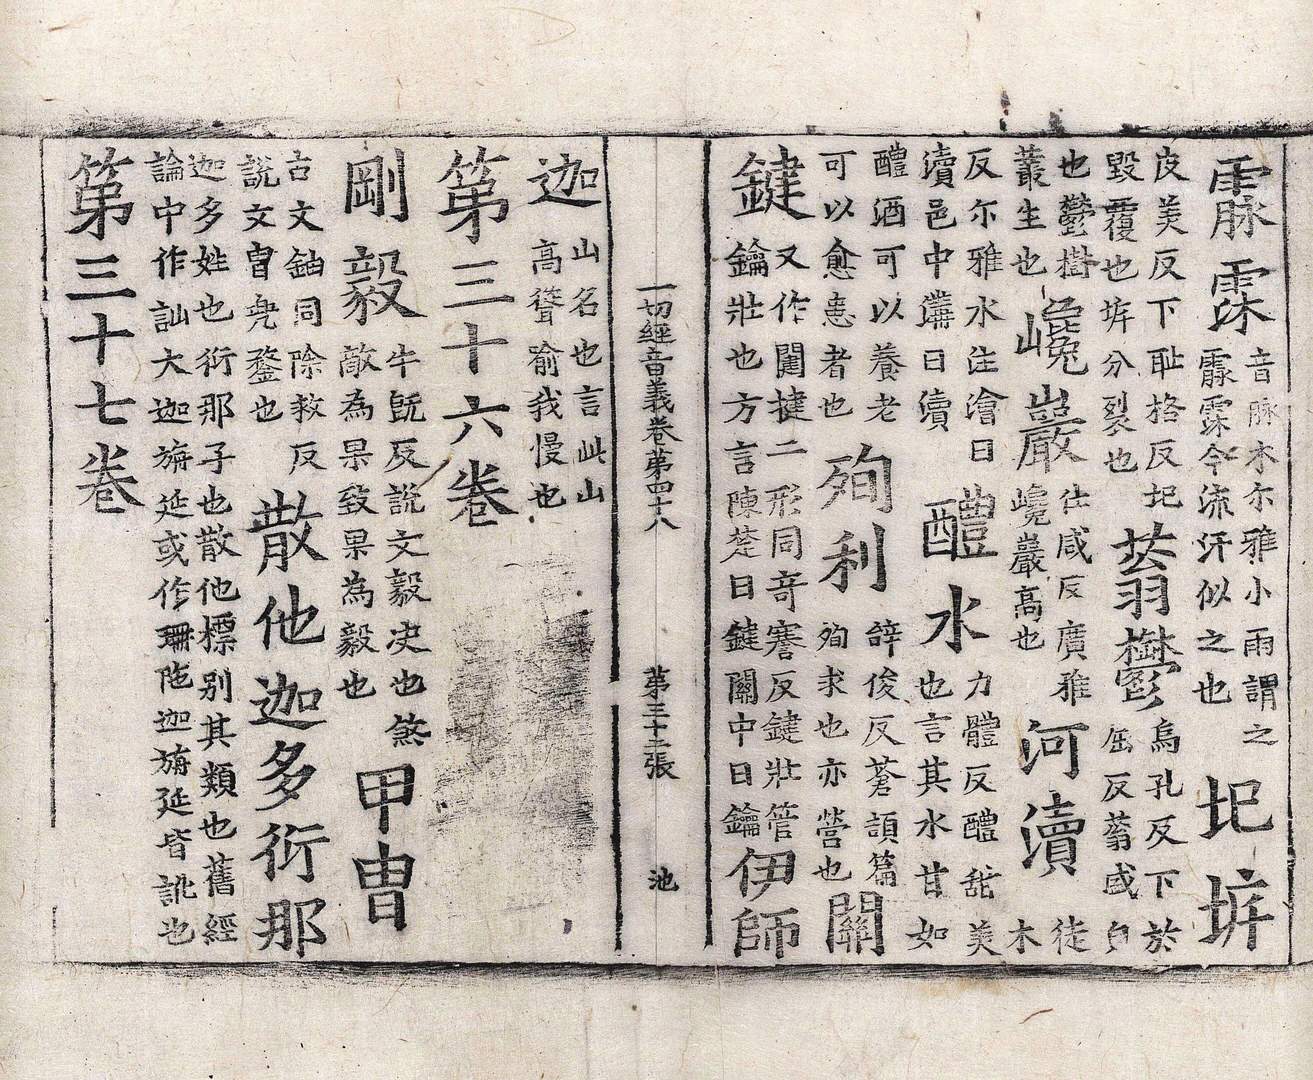 霢霂
音脉木尔雅小雨謂之
霢霂今流汗似之也
圮坼
皮美反下耻格反圮
毀覆也坼分裂也
蓊鬱
烏孔反下於
屈反蓊盛皃
也鬱樹
叢生也
巉巖
仕咸反廣雅
巉巖高也
河瀆
徒
木
反尔雅水注澮曰
瀆邑中溝曰瀆
醴水
力體反醴甜美
也言其水甘如
醴酒可以養老
可以愈患者也
殉利
辝俊反蒼頡篇
殉求也亦營也
關
鍵
又作闥揵二形同奇謇反鍵壯管
鑰壯也方言陳楚曰鍵關中曰鑰
伊師
一切經音義卷第四十八　第三十二張　池
迦
山名也言此山
高聳喻我慢也
第三十六卷
剛毅
牛既反說文毅決也煞
敵為果致果為毅也
甲冑
古文鈾同除救反
說文冑兜鍪也
散他迦多衍那
迦多姓也衍那子也散他標別其類也舊經
論中作訕大迦旃延或作珊陁迦旃延皆訛也
第三十七卷